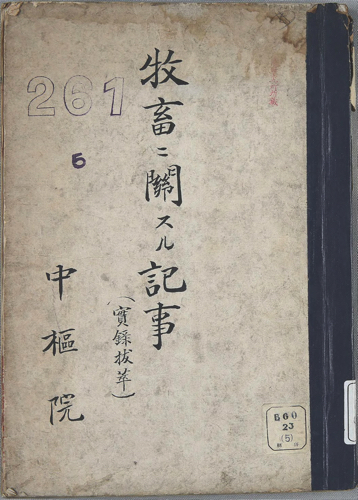 牧畜ニ關スル記事
(實錄拔萃)
中樞院
261
5
B60
23
(5)